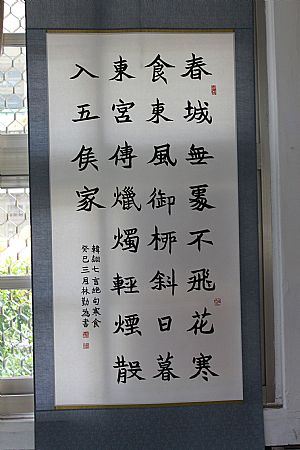 春城無處不飛花寒
食東風御柳斜日暮
東宮傳爉燭輕煙散
入五侯家
韓翃七言絕句寒食
癸巳三月林勤為書